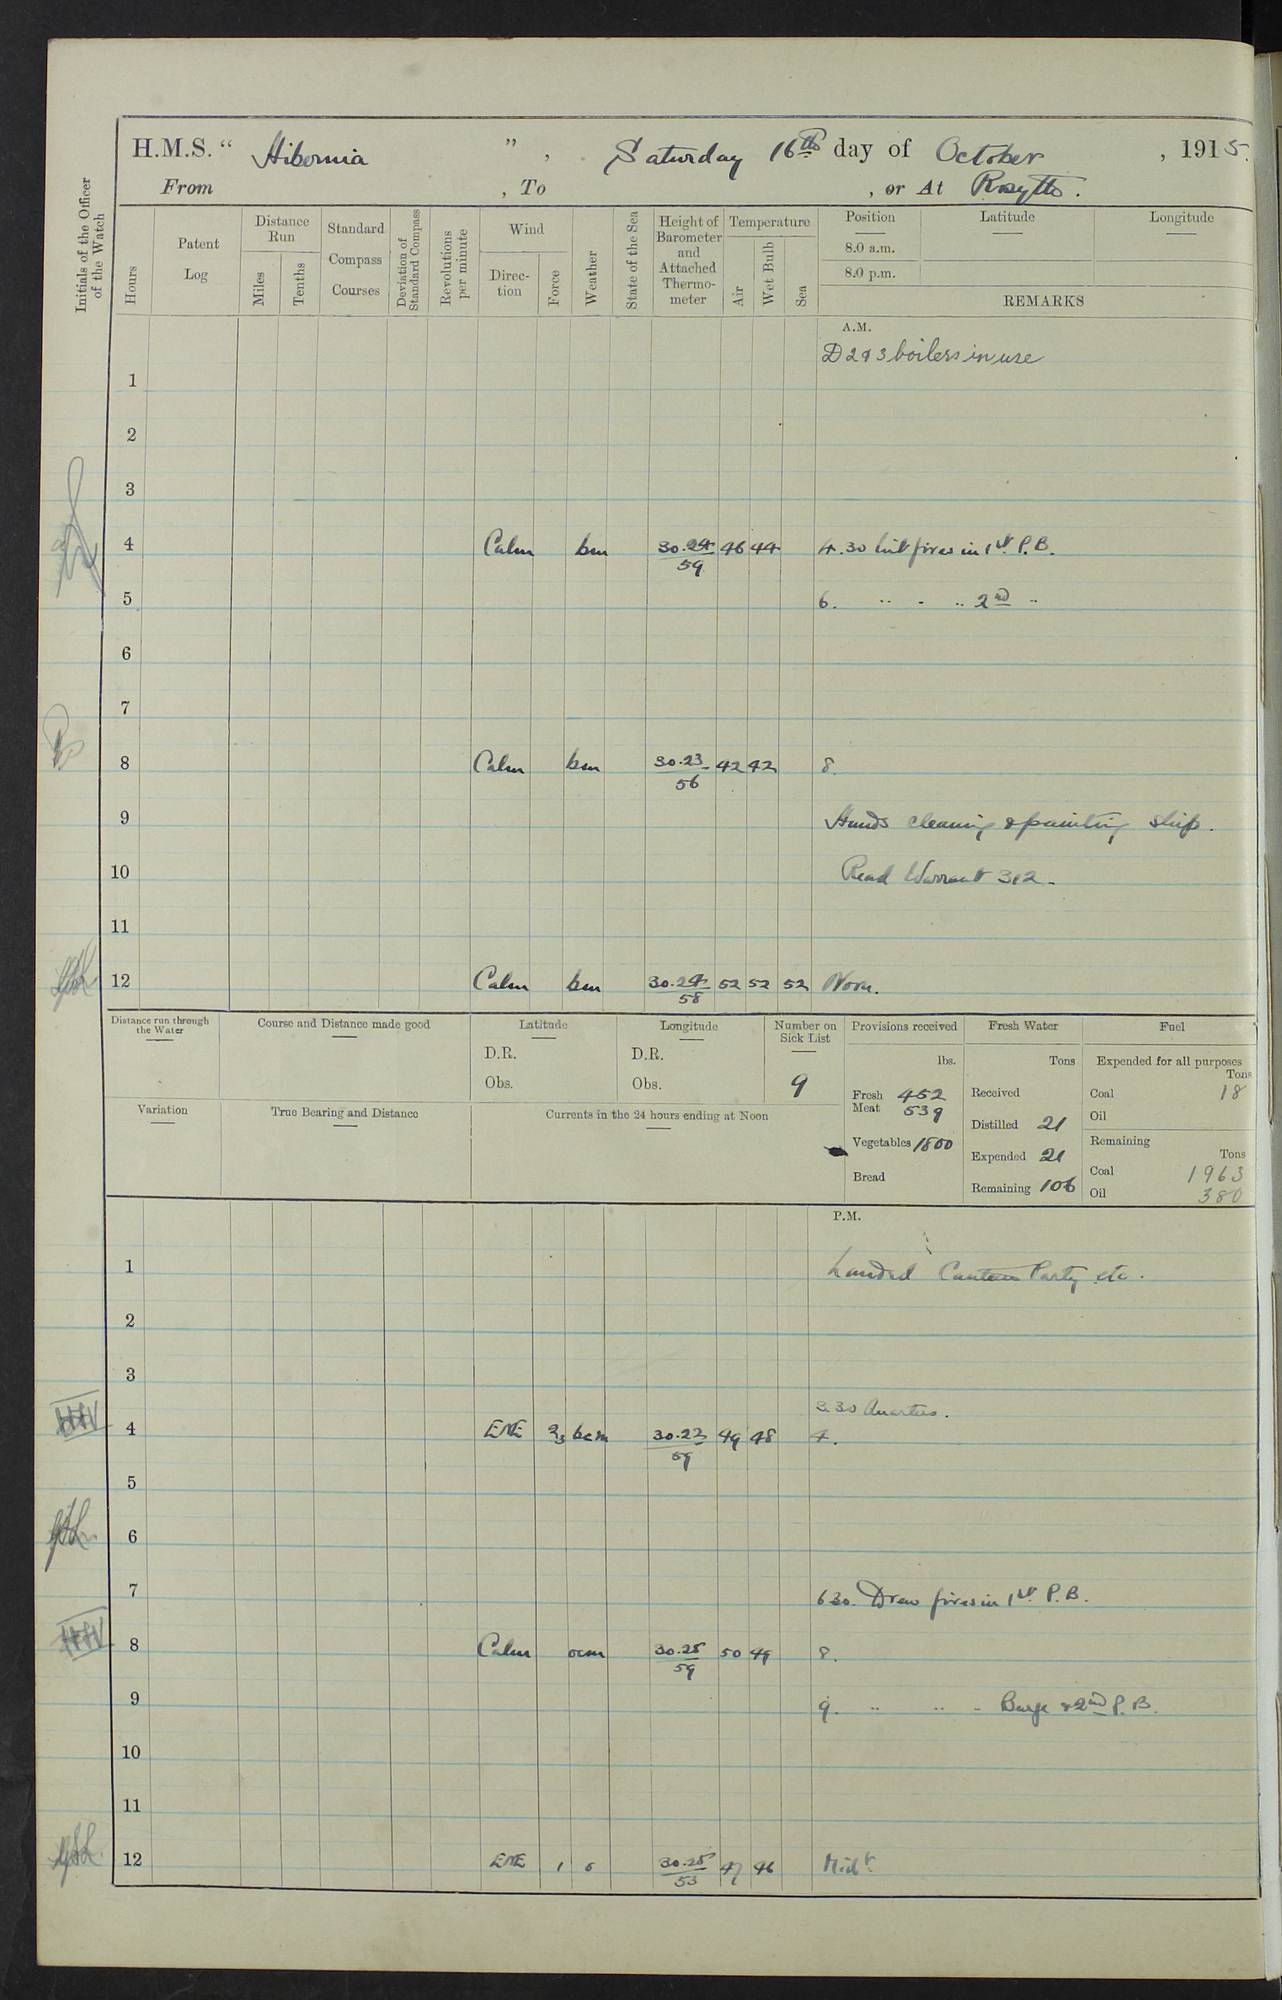 H.M.S. " Hibernia " , Saturday 16th day of October , 1915.
From , To , or At Rosyth.
Initials of the Officer of the Watch
Hours
Patent Log
Distance Run
Miles
Tenths
Standard Compass Courses
Deviation of Standard Compass
Revolutions per minute
Wind
Direction
Force
Weather
State of the Sea
Height of Barometer and Attached Thermometer
Temperature
Air
Wet Bulb
Sea
Position Latitude Longitude
8.0 a.m.
8.0 p.m.
REMARKS
A.M.
D 2 & 3 boilers in use
1
2
3
4 Calm bm 30.24 46 44 4.30 lit fires in 1st P.B.
59
5 6. " " " 2nd "
6
7
8 Calm bm 30.23 42 42 8.
56
9 Hands cleaning & painting ship.
10 Read Warrant 312.
11
12 Calm bm 30.24 52 52 52 Noon.
58
Distance run through the Water
Course and Distance made good
Latitude
D.R.
Obs.
Longitude
D.R.
Obs.
Number on Sick List
9
Variation
True Bearing and Distance
Currents in the 24 hours ending at Noon
Provisions received
lbs.
Fresh Meat 452
539
Vegetables 1800
Bread
Fresh Water
Tons
Received
Distilled 21
Expended 21
Remaining 106
Fuel
Expended for all purposes
Tons
Coal 18
Oil
Remaining
Tons
Coal 1963
Oil 380
P.M.
1 Landed Canteen Party etc.
2
3
3.30 Quarters.
4 ENE 2/3 bcm 30.23 49 48 4.
59
5
6
7 6 30. Drew fires in 1st P.B.
8 Calm ocm 30.25 50 49 8.
59
9 9. " " " Barge & 2nd P.B.
10
11
12 ENE 1 o 30.25 47 46 Midt.
53